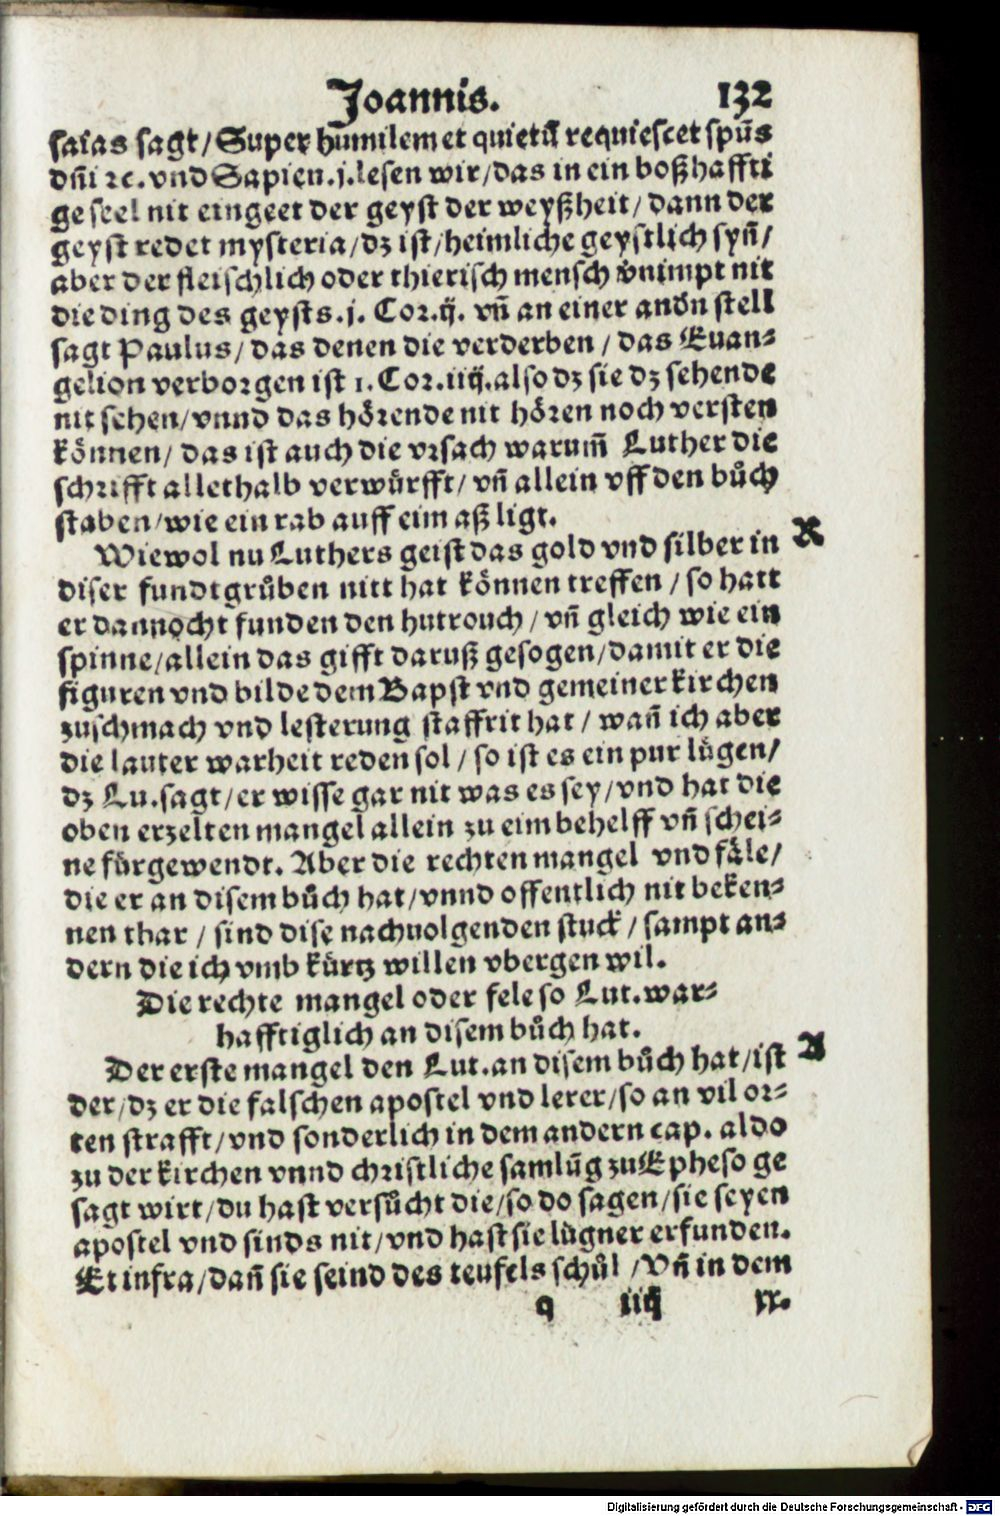 Joannis. 132
saias sagt/Super humilem et quietũ requiescet spũs
dñi ꝛc. vnd Sapien.j.lesen wir/das in ein boßhaffti
ge seel nit eingeet der geyst der weyßheit/dann der
geyst redet mysteria/dz ist/heimliche geystlich syñ/
aber der fleischlich oder thierisch mensch v̈nimpt nit
die ding des geysts.j. Cor.ij. vñ an einer andn̄ stell
sagt Paulus/das denen die verderben/das Euan⸗
gelion verborgen ist 1. Cor.iiij.also dz sie dz sehende
nit sehen/vnnd das hörende nit hören noch versten
können/das ist auch die vrsach warum̃ Luther die
schrifft allethalb verwürfft/vñ allein vff den bůch
staben/wie ein rab auff eim aß ligt.
Wiewol nu Luthers geist das gold vnd silber in X
diser fundtgrůben nitt hat können treffen/so hatt
er dannocht funden den hutrouch/vñ gleich wie ein
spinne/allein das gifft daruß gesogen/damit er die
figuren vnd bilde dem Bapst vnd gemeiner kirchen
zuschmach vnd lesterung staffrit hat/wañ ich aber
die lauter warheit reden sol/so ist es ein pur lügen/
dz Lu.sagt/er wisse gar nit was es sey/vnd hat die
oben erzelten mangel allein zu eim behelff vñ schei⸗
ne fürgewendt. Aber die rechten mangel vnd fäle/
die er an disem bůch hat/vnnd offentlich nit beken⸗
nen thar/sind dise nachuolgenden stuck/sampt an⸗
dern die ich vmb kürtz willen vbergen wil.
Die rechte mangel oder fele so Lut.war⸗
hafftiglich an disem bůch hat.
Der erste mangel den Lut.an disem bůch hat/ist A
der/dz er die falschen apostel vnd lerer/so an vil or⸗
ten strafft/vnd sonderlich in dem andern cap. aldo
zu der kirchen vnnd christliche samlũg zu Epheso ge
sagt wirt/du hast versůcht die/so do sagen/sie seyen
apostel vnd sinds nit/vnd hast sie lügner erfunden.
Et infra/dañ sie seind des teufels schůl/Vñ in dem
q iiij xx.
Digitalisierung gefördert durch die Deutsche Forschungsgemeinschaft - DFG